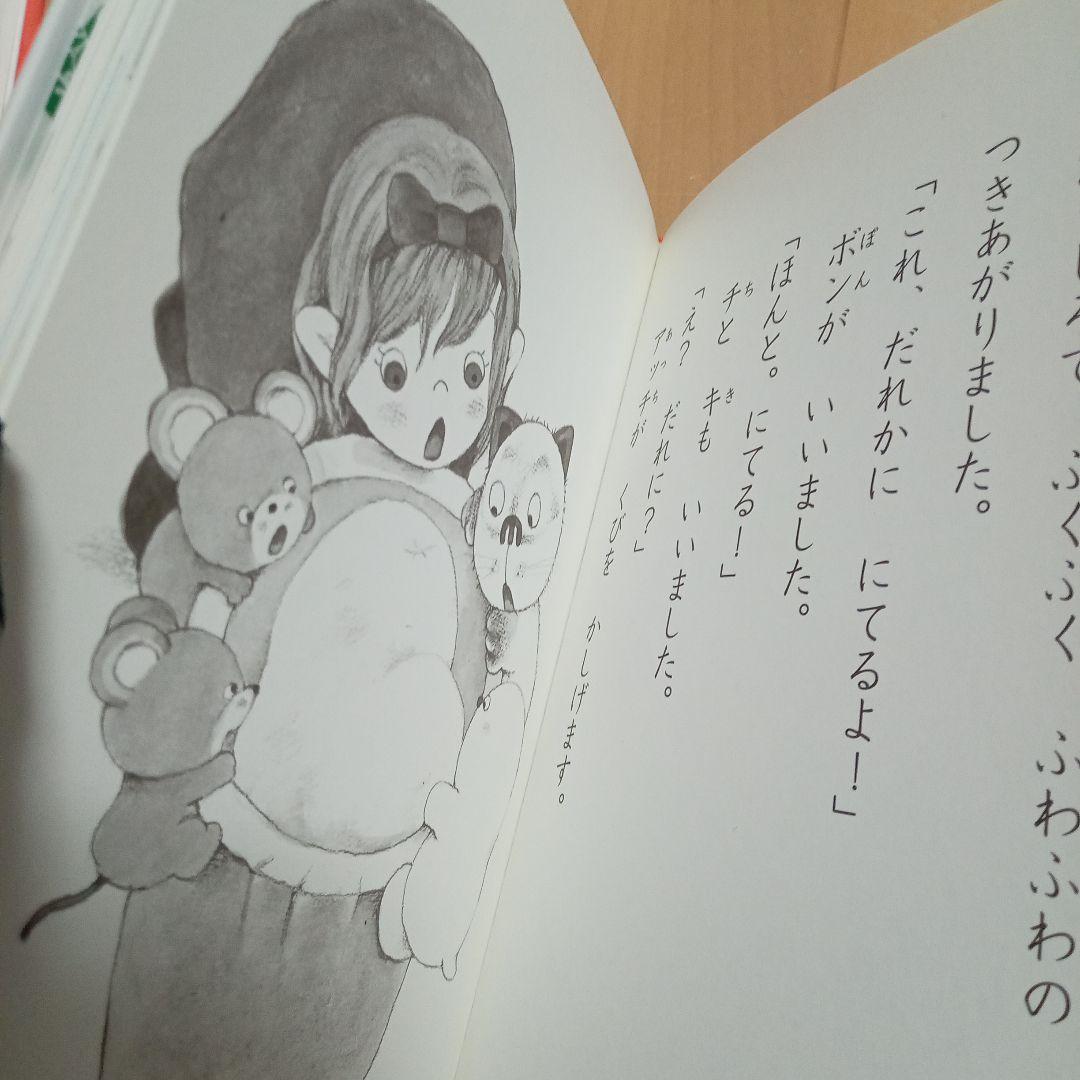 ふくふく ふわふわの
つきあがりました。
「これ、だれかに にてるよ！」
ボンが いいました。
「ほんと。 にてる！」
チと キも いいました。
「え？ だれに？」
アッチが くびを かしげます。